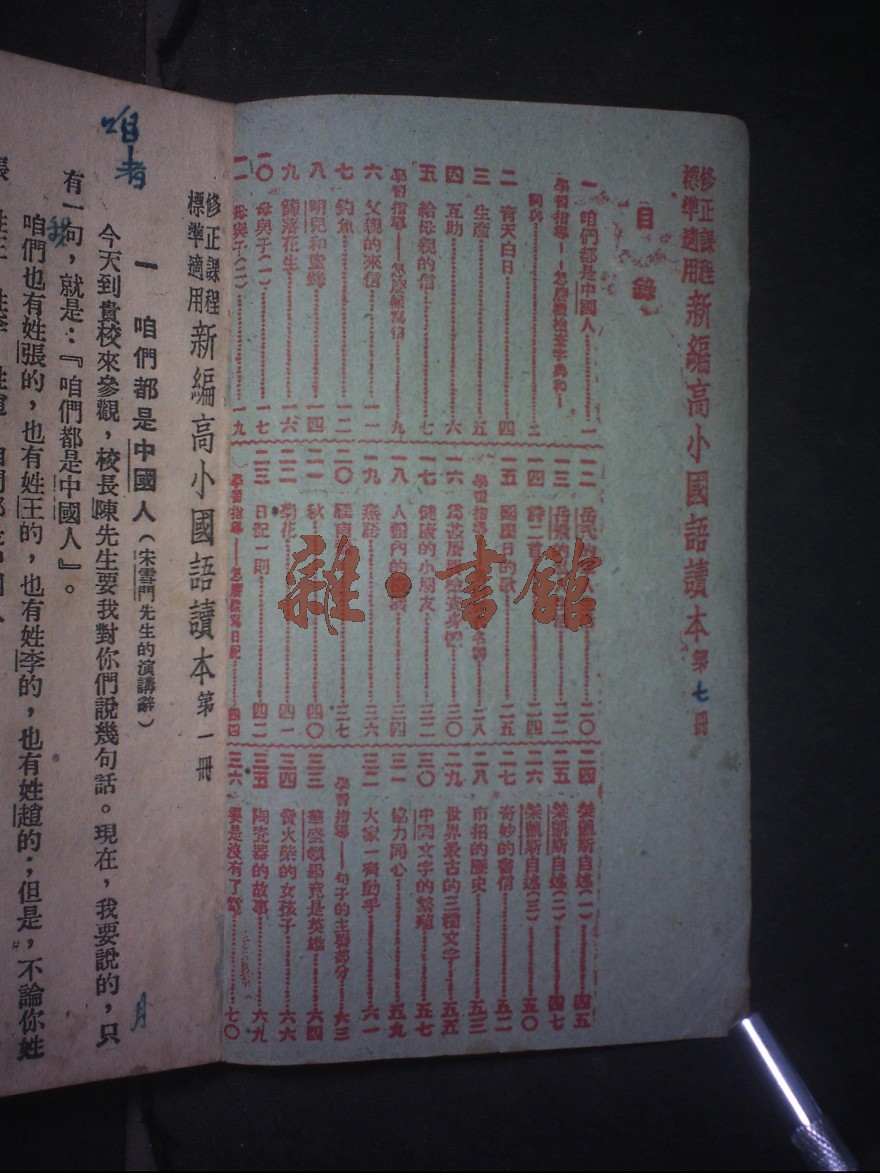 修正課程標準適用 新編高小國語讀本 第七冊
目錄
一 咱們都是中國人 一
學習指導——怎麼樣檢查字典和
詞典 三
二 青天白日 四
三 生產 五
四 互助 六
五 給母親的信 七
學習指導——怎麼樣寫信 九
六 父親的來信 一一
七 釣魚 一二
八 明兒和蜜蜂 一四
九 落花生 一六
一〇 母與子(一) 一七
一一 母與子(二) 一九
一二 岳飛 二〇
一三 岳飛 二二
一四 詩二首 二四
一五 國慶日的歌 二五
學習指導 二八
一六 爲甚麼 三〇
一七 健康的小朋友 三二
一八 人體內的 三四
一九 燕語 三六
二〇 三七
二一 秋 四〇
二二 菊花 四一
二三 日記一則 四二
學習指導——怎麼樣寫日記 四四
二四 萊凱斯自述(一) 四五
二五 萊凱斯自述(二) 四七
二六 萊凱斯自述(三) 五〇
二七 奇妙的書信 五二
二八 市招的歷史 五三
二九 世界最古的三種文字 五五
三〇 中國文字的繁殖 五七
三一 協力同心 五九
三二 大家一齊動手 六一
學習指導——句子的主要部分 六三
三三 華盛頓畢竟是英雄 六四
三四 賣火柴的女孩子 六六
三五 陶瓷器的故事 六九
三六 要是沒有了 七〇
雜·書館
修正課程標準適用 新編高小國語讀本 第一冊
一 咱們都是中國人(宋雲門先生的演講辭)
今天到貴校來參觀,校長陳先生要我對你們說幾句話。現在,我要說的,只
有一句,就是:『咱們都是中國人』。
咱們也有姓張的,也有姓王的,也有姓李的,也有姓趙的;但是,不論你姓
咱
月